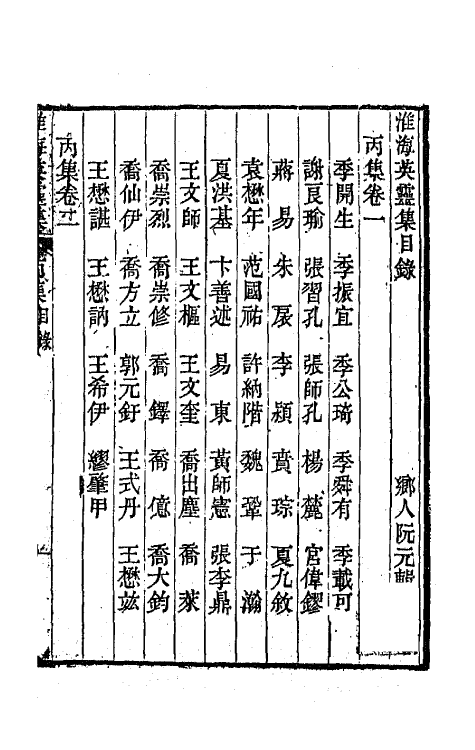 淮海英靈集目錄　鄉人阮元輯
丙集卷一
季開生　季振宜　季公琦　季舜有　季載可
謝良瑜　張習孔　張師孔　楊麓　宮偉鏐
蔣易　朱扆　李潁　賁琮　夏九敘
袁懋年　范國祐　許納陛　魏鞏　于瀚
夏洪基　卞善述　易東　黃師憲　張李鼎
王文師　王文樞　王文奎　喬出塵　喬萊
喬崇烈　喬崇修　喬鐸　喬億　喬大鈞
喬仙伊　喬方立　郭元釪　王式丹　王懋竑
王懋諶　王懋訥　王希伊　繆肇甲
丙集卷二